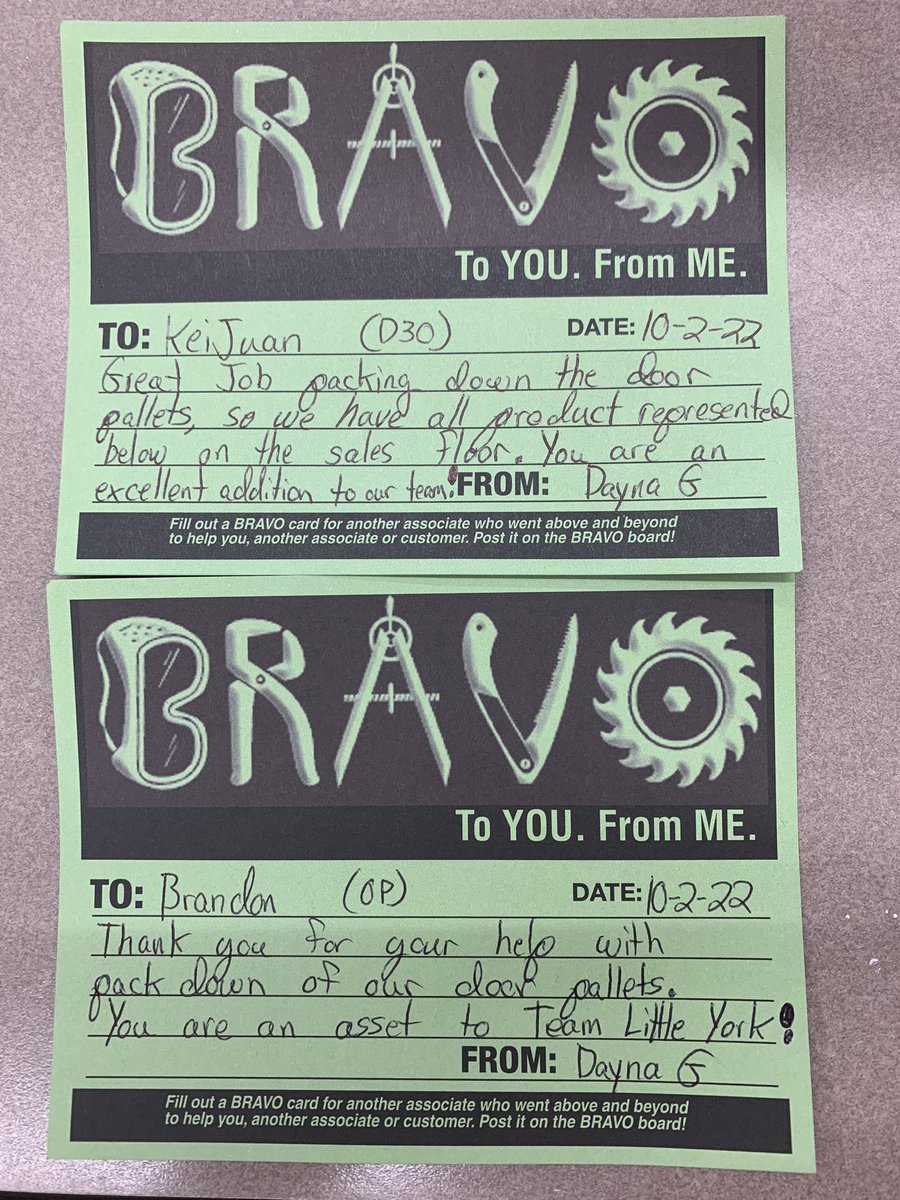 BRAVO
To YOU. From ME.
TO: KeiJuan (D30) DATE: 10-2-22
Great Job packing down the door
pallets, so we have all product represented
below on the sales floor. You are an
excellent addition to our team! FROM: Dayna G
Fill out a BRAVO card for another associate who went above and beyond
to help you, another associate or customer. Post it on the BRAVO board!
BRAVO
To YOU. From ME.
TO: Brandon (OP) DATE: 10-2-22
Thank you for your help with
pack down of our door pallets.
You are an asset to Team Little York!
FROM: Dayna G
Fill out a BRAVO card for another associate who went above and beyond
to help you, another associate or customer. Post it on the BRAVO board!